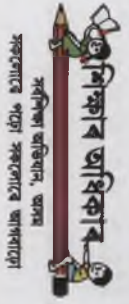 শিক্ষাৰ অধিকাৰ
সৰ্বশিক্ষা অভিযান, অসম
সকলোৱে পঢ়ো সকলোৱে আগবাঢ়ো